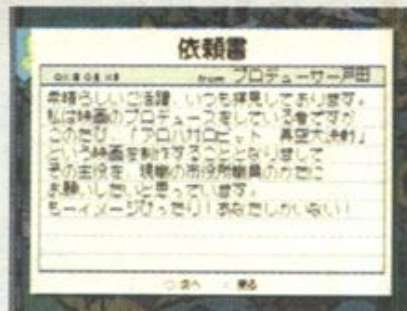 依頼書
from プロデューサー戸田
素晴らしいご活躍、いつも拝見しております。
私は映画のプロデュースをしている者ですが
このたび、「アロハサロピット 真空大決戦」
という映画を制作することとなりまして
その主役を、現職の市役所職員のかたに
お願いしたいと思っています。
もーイメージぴったり!あなたしかいない!
○ 次へ × 戻る